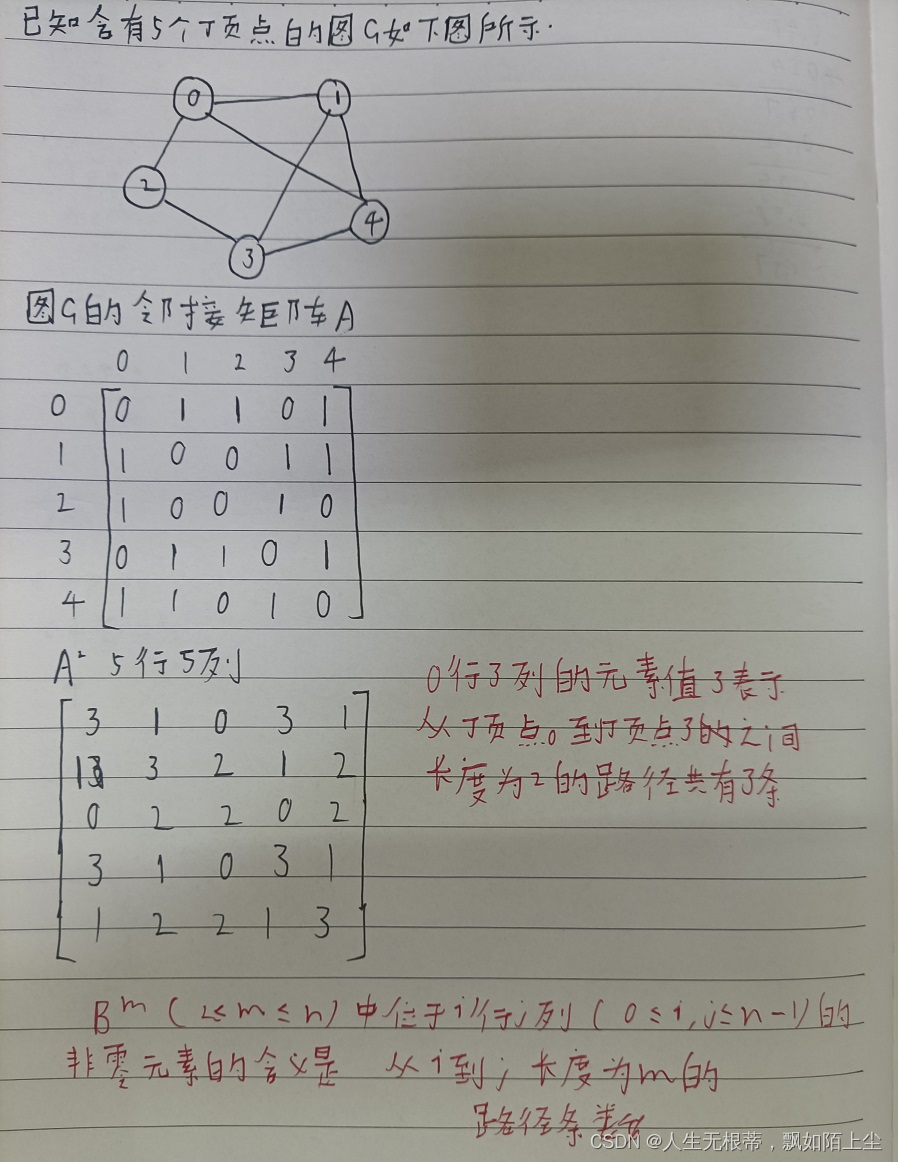 已知含有5个顶点的图G如下图所示.
0 1
2
4
3
图G的邻接矩阵A
0 1 2 3 4
0 0 1 1 0 1
1 1 0 0 1 1
2 1 0 0 1 0
3 0 1 1 0 1
4 1 1 0 1 0
A² 5行5列
3 1 0 3 1
1 3 2 1 2
0 2 2 0 2
3 1 0 3 1
1 2 2 1 3
0行3列的元素值3表示
从顶点0到顶点3的之间
长度为2的路径共有3条
Bᵐ(2≤m≤n)中位于i行j列(0≤i,j≤n-1)的
非零元素的含义是 从i到j长度为m的
路径条数
CSDN @人生无根蒂，飘如陌上尘